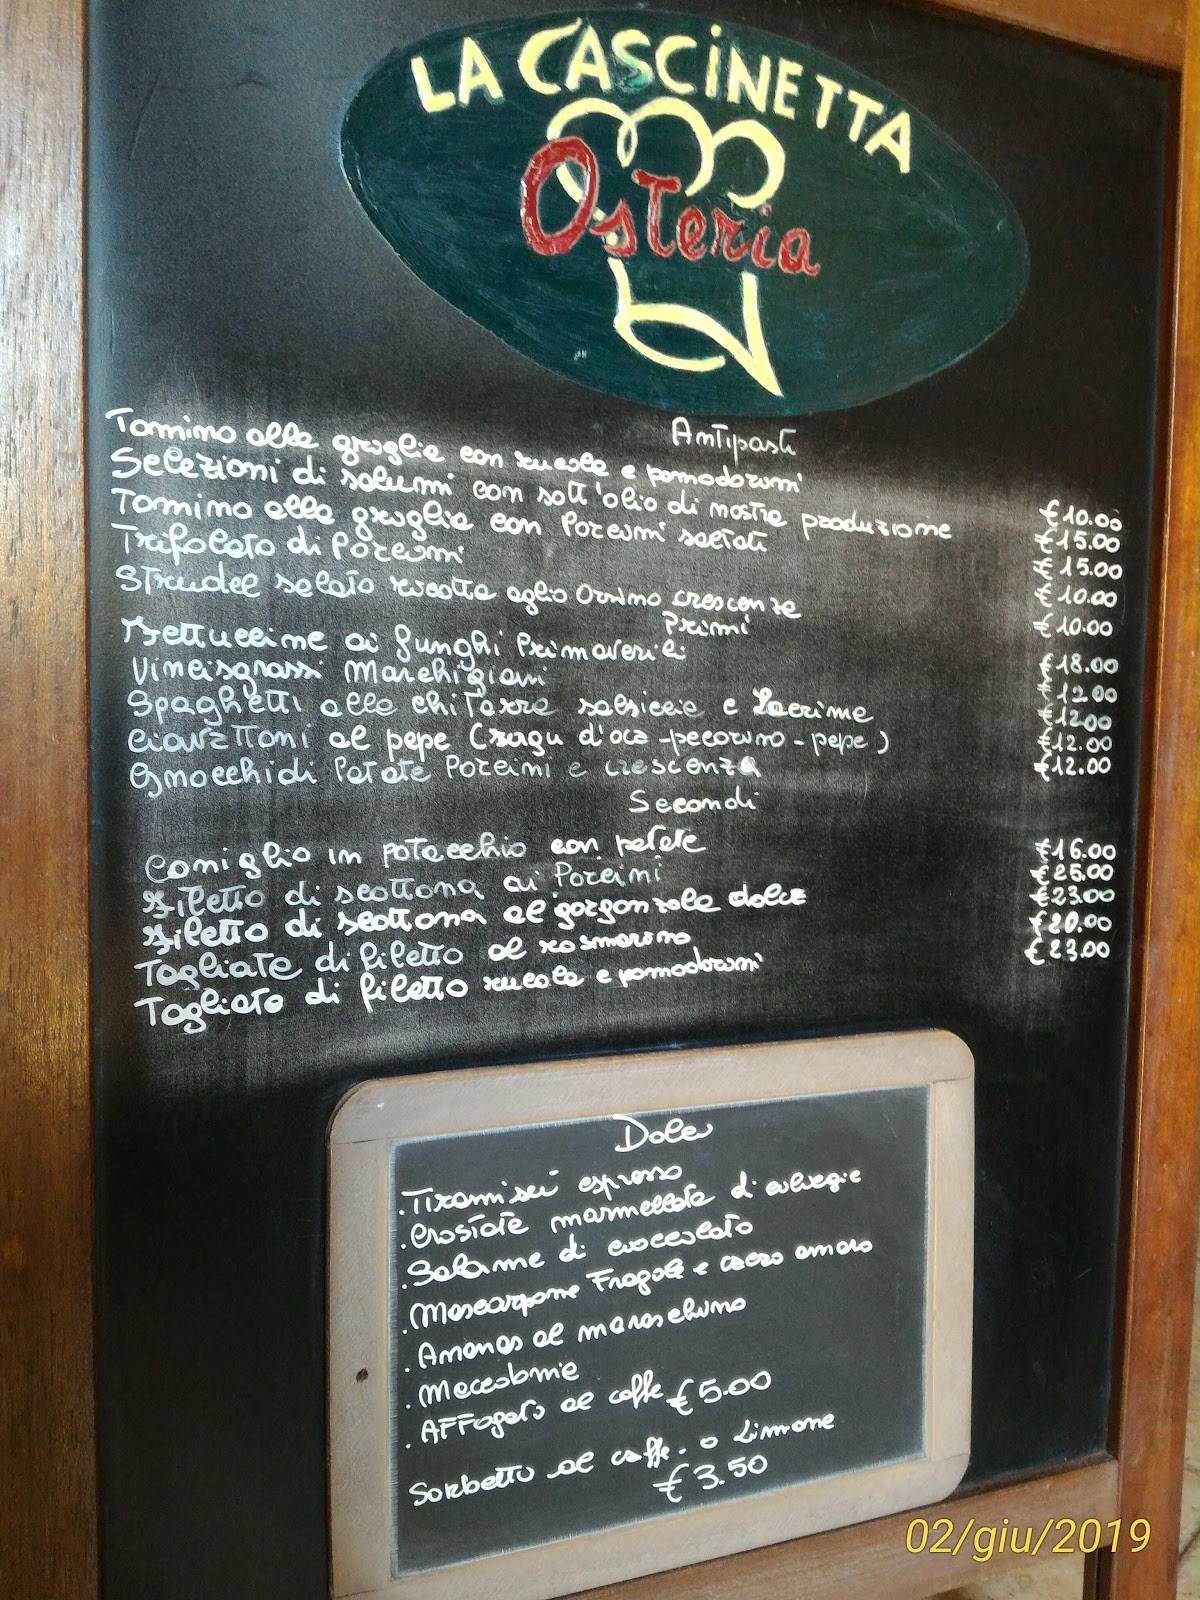 LA CASCINETTA
Osteria
Antipasti
Tomino alla griglia con rucola e pomodorini
Selezioni di salumi con sott'olio di nostra produzione
Tomino alla griglia con Porcini saltati
Trifolato di Porcini
Strudel salato ricotta aglio Orsino crescenza
€10.00
€15.00
€15.00
€10.00
€10.00
Primi
Fettuccine ai funghi Primaverili
Vincisgrassi Marchigiani
Spaghetti alla chitarra salsiccia e Lacrime
ciavattoni al pepe (ragu d'oca - pecorino - pepe)
Gnocchi di Patate Porcini e crescenza
€18.00
€12.00
€12.00
€12.00
€12.00
Secondi
Coniglio in potacchio con patate
Filetto di scottona ai Porcini
Filetto di scottona al gorgonzola dolce
Tagliata di filetto al rosmarino
Tagliata di filetto rucola e pomodorini
€16.00
€25.00
€23.00
€20.00
€23.00
Dolci
. Tiramisù espresso
. Crostate marmellata di ciliegie
. Salame di cioccolato
. Mascarpone Fragole e cacao amaro
. Ananas al maraschino
. Macedonia
. AFFogato al caffe €5.00
Sorbetto al caffe - o Limone
€3.50
02/giu/2019